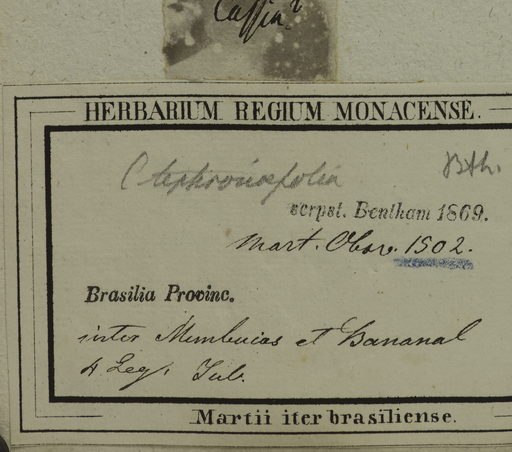 Cassia?
HERBARIUM REGIUM MONACENSE.
C tephrosiaefolia Bth.
scrpst. Bentham 1869.
Mart. Obs. 1502.
Brasilia Provinc.
inter Membucas et Bananal
4 Leg. Jul.
Martii iter brasiliense.